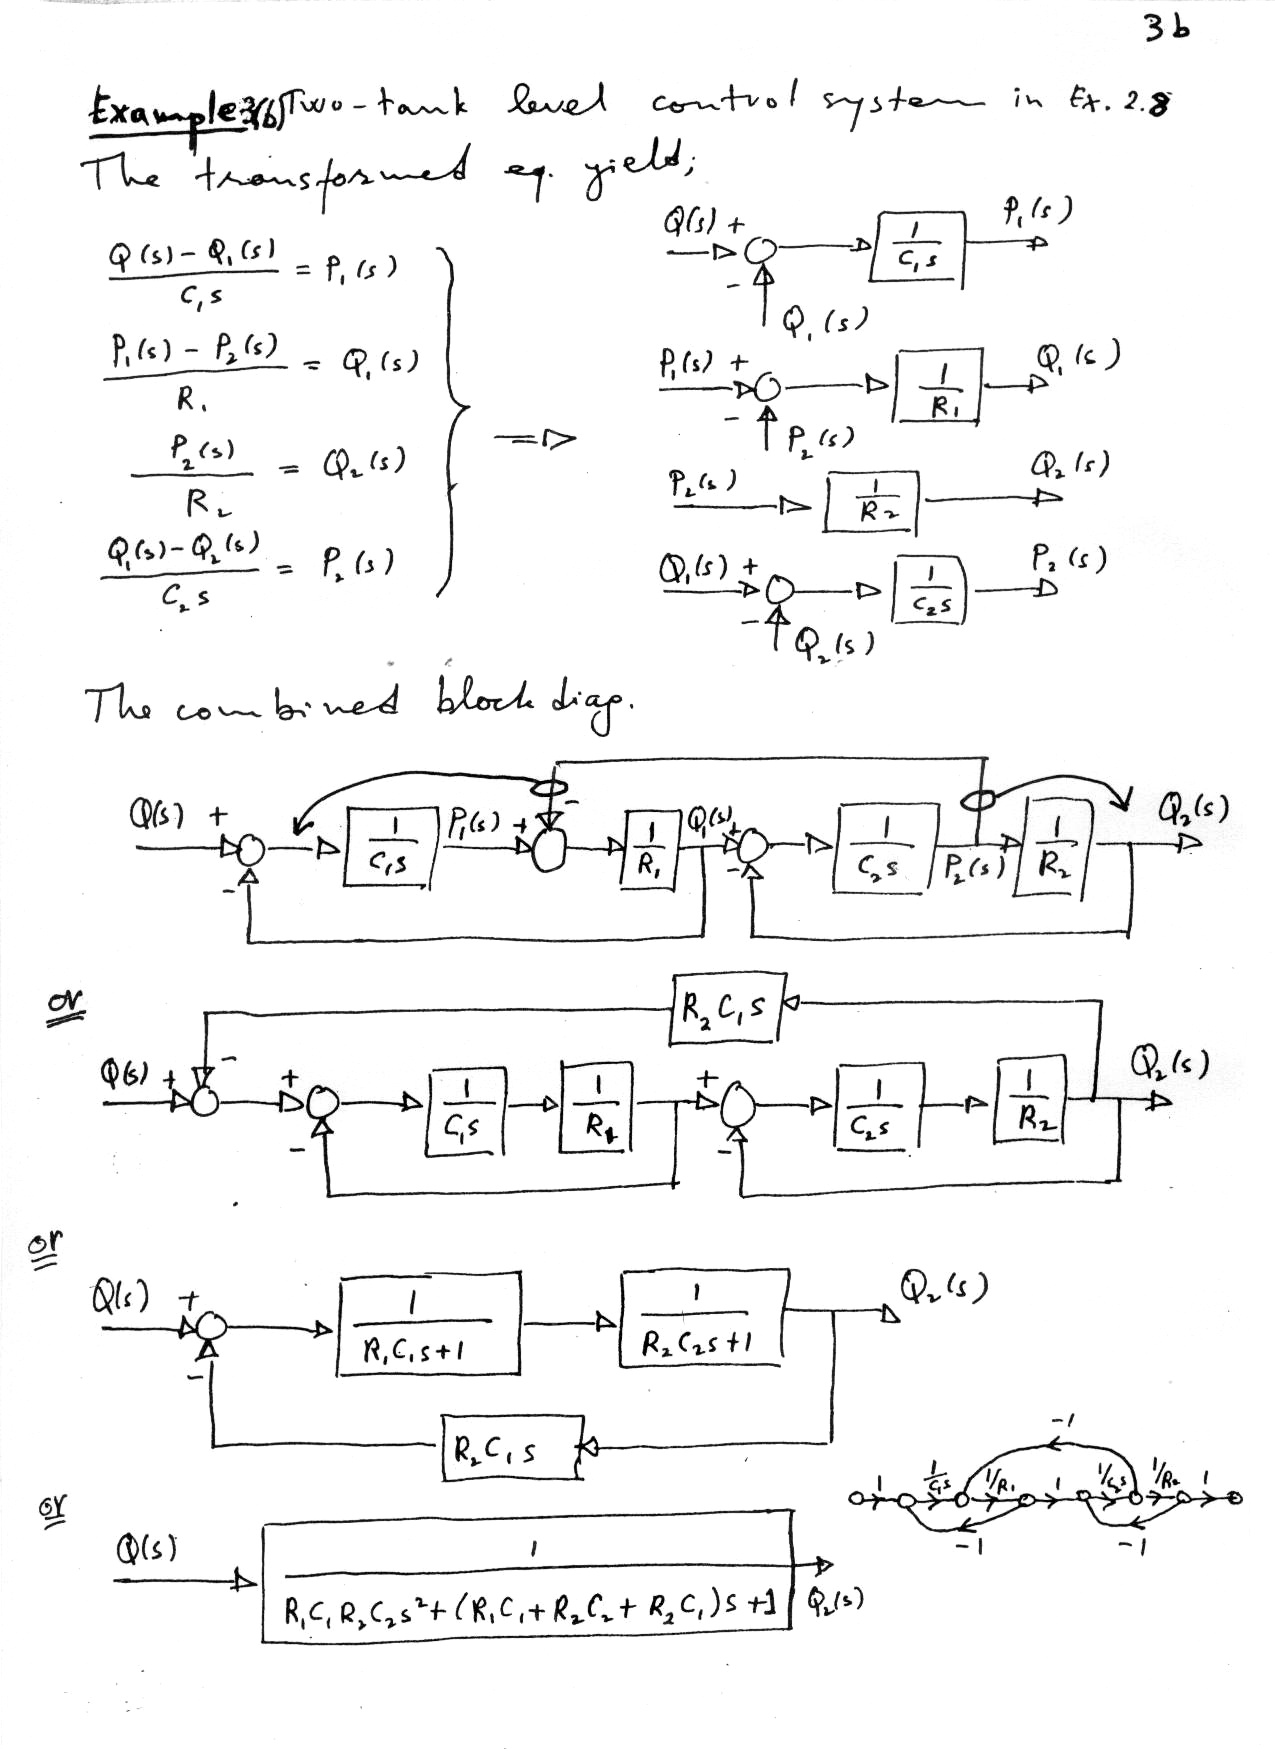 3b
Example 3(b) Two-tank level control system in Ex. 2.8
The transformed eq. yield;
(Q(s) - Q₁(s)) / C₁s = P₁(s)
(P₁(s) - P₂(s)) / R₁ = Q₁(s)
P₂(s) / R₂ = Q₂(s)
(Q₁(s) - Q₂(s)) / C₂s = P₂(s)
⇒
Q(s) + - Q₁(s) 1/C₁s P₁(s)
P₁(s) + - P₂(s) 1/R₁ Q₁(s)
P₂(s) 1/R₂ Q₂(s)
Q₁(s) + - Q₂(s) 1/C₂s P₂(s)
The combined block diag.
Q(s) + - 1/C₁s P₁(s) + - 1/R₁ Q₁(s) + - 1/C₂s P₂(s) 1/R₂ Q₂(s)
or
R₂C₁s
Q(s) + - + - 1/C₁s 1/R₁ + - 1/C₂s 1/R₂ Q₂(s)
or
Q(s) + - 1/(R₁C₁s+1) 1/(R₂C₂s+1) Q₂(s)
R₂C₁s
-1
1 1/C₁s 1/R₁ 1 1/C₂s 1/R₂ 1
-1 -1
or
Q(s) 1 / (R₁C₁R₂C₂s² + (R₁C₁ + R₂C₂ + R₂C₁)s + 1) Q₂(s)